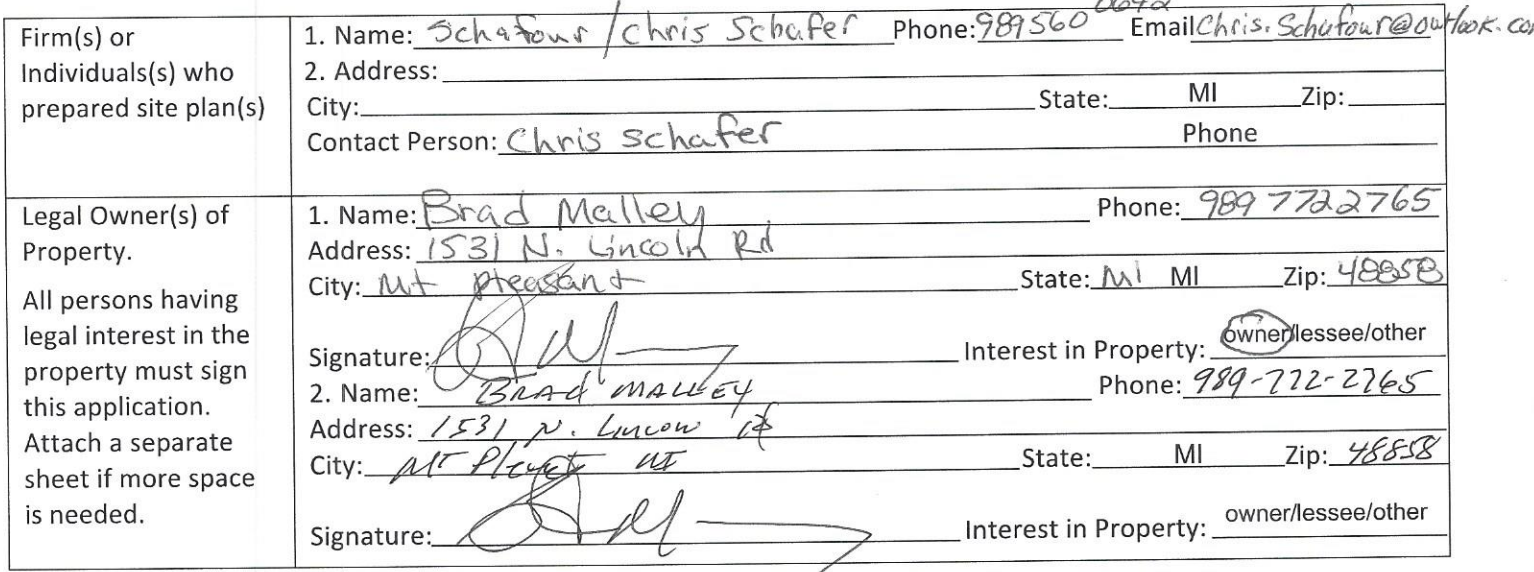 Firm(s) or
Individuals(s) who
prepared site plan(s)
1. Name: Schafour / Chris Schafer Phone: 989 560 0642 Email Chris.Schafour@outlook.co
2. Address:
City: State: MI Zip:
Contact Person: Chris Schafer Phone
Legal Owner(s) of
Property.
All persons having
legal interest in the
property must sign
this application.
Attach a separate
sheet if more space
is needed.
1. Name: Brad Malley Phone: 989 772 2765
Address: 1531 N. Lincoln Rd
City: Mt Pleasant State: MI MI Zip: 48858
Signature: Interest in Property: owner/lessee/other
2. Name: BRAD MALLEY Phone: 989-772-2765
Address: 1531 N. Lincoln Rd
City: MT Pleasant MI State: MI Zip: 48858
Signature: Interest in Property: owner/lessee/other